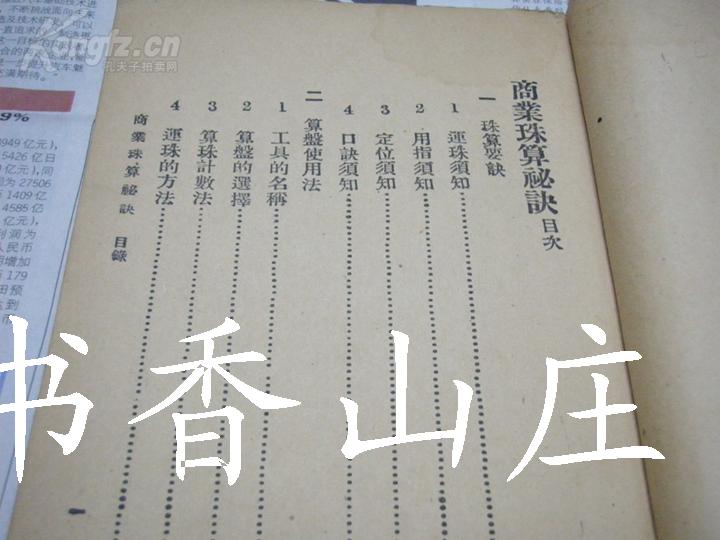 商業珠算祕訣目次
一 珠算要訣
1 運珠須知
2 用指須知
3 定位須知
4 口訣須知
二 算盤使用法
1 工具的名稱
2 算盤的選擇
3 算珠計數法
4 運珠的方法
商業珠算祕訣 目錄
书香山庄
Kongfz.cn
孔夫子拍卖网
9%
3949 亿元),
5426 亿日
亿元),同
为 27506
1409 亿
4585 亿
亿元),
利润为
人民币
增加
179
田预
达到